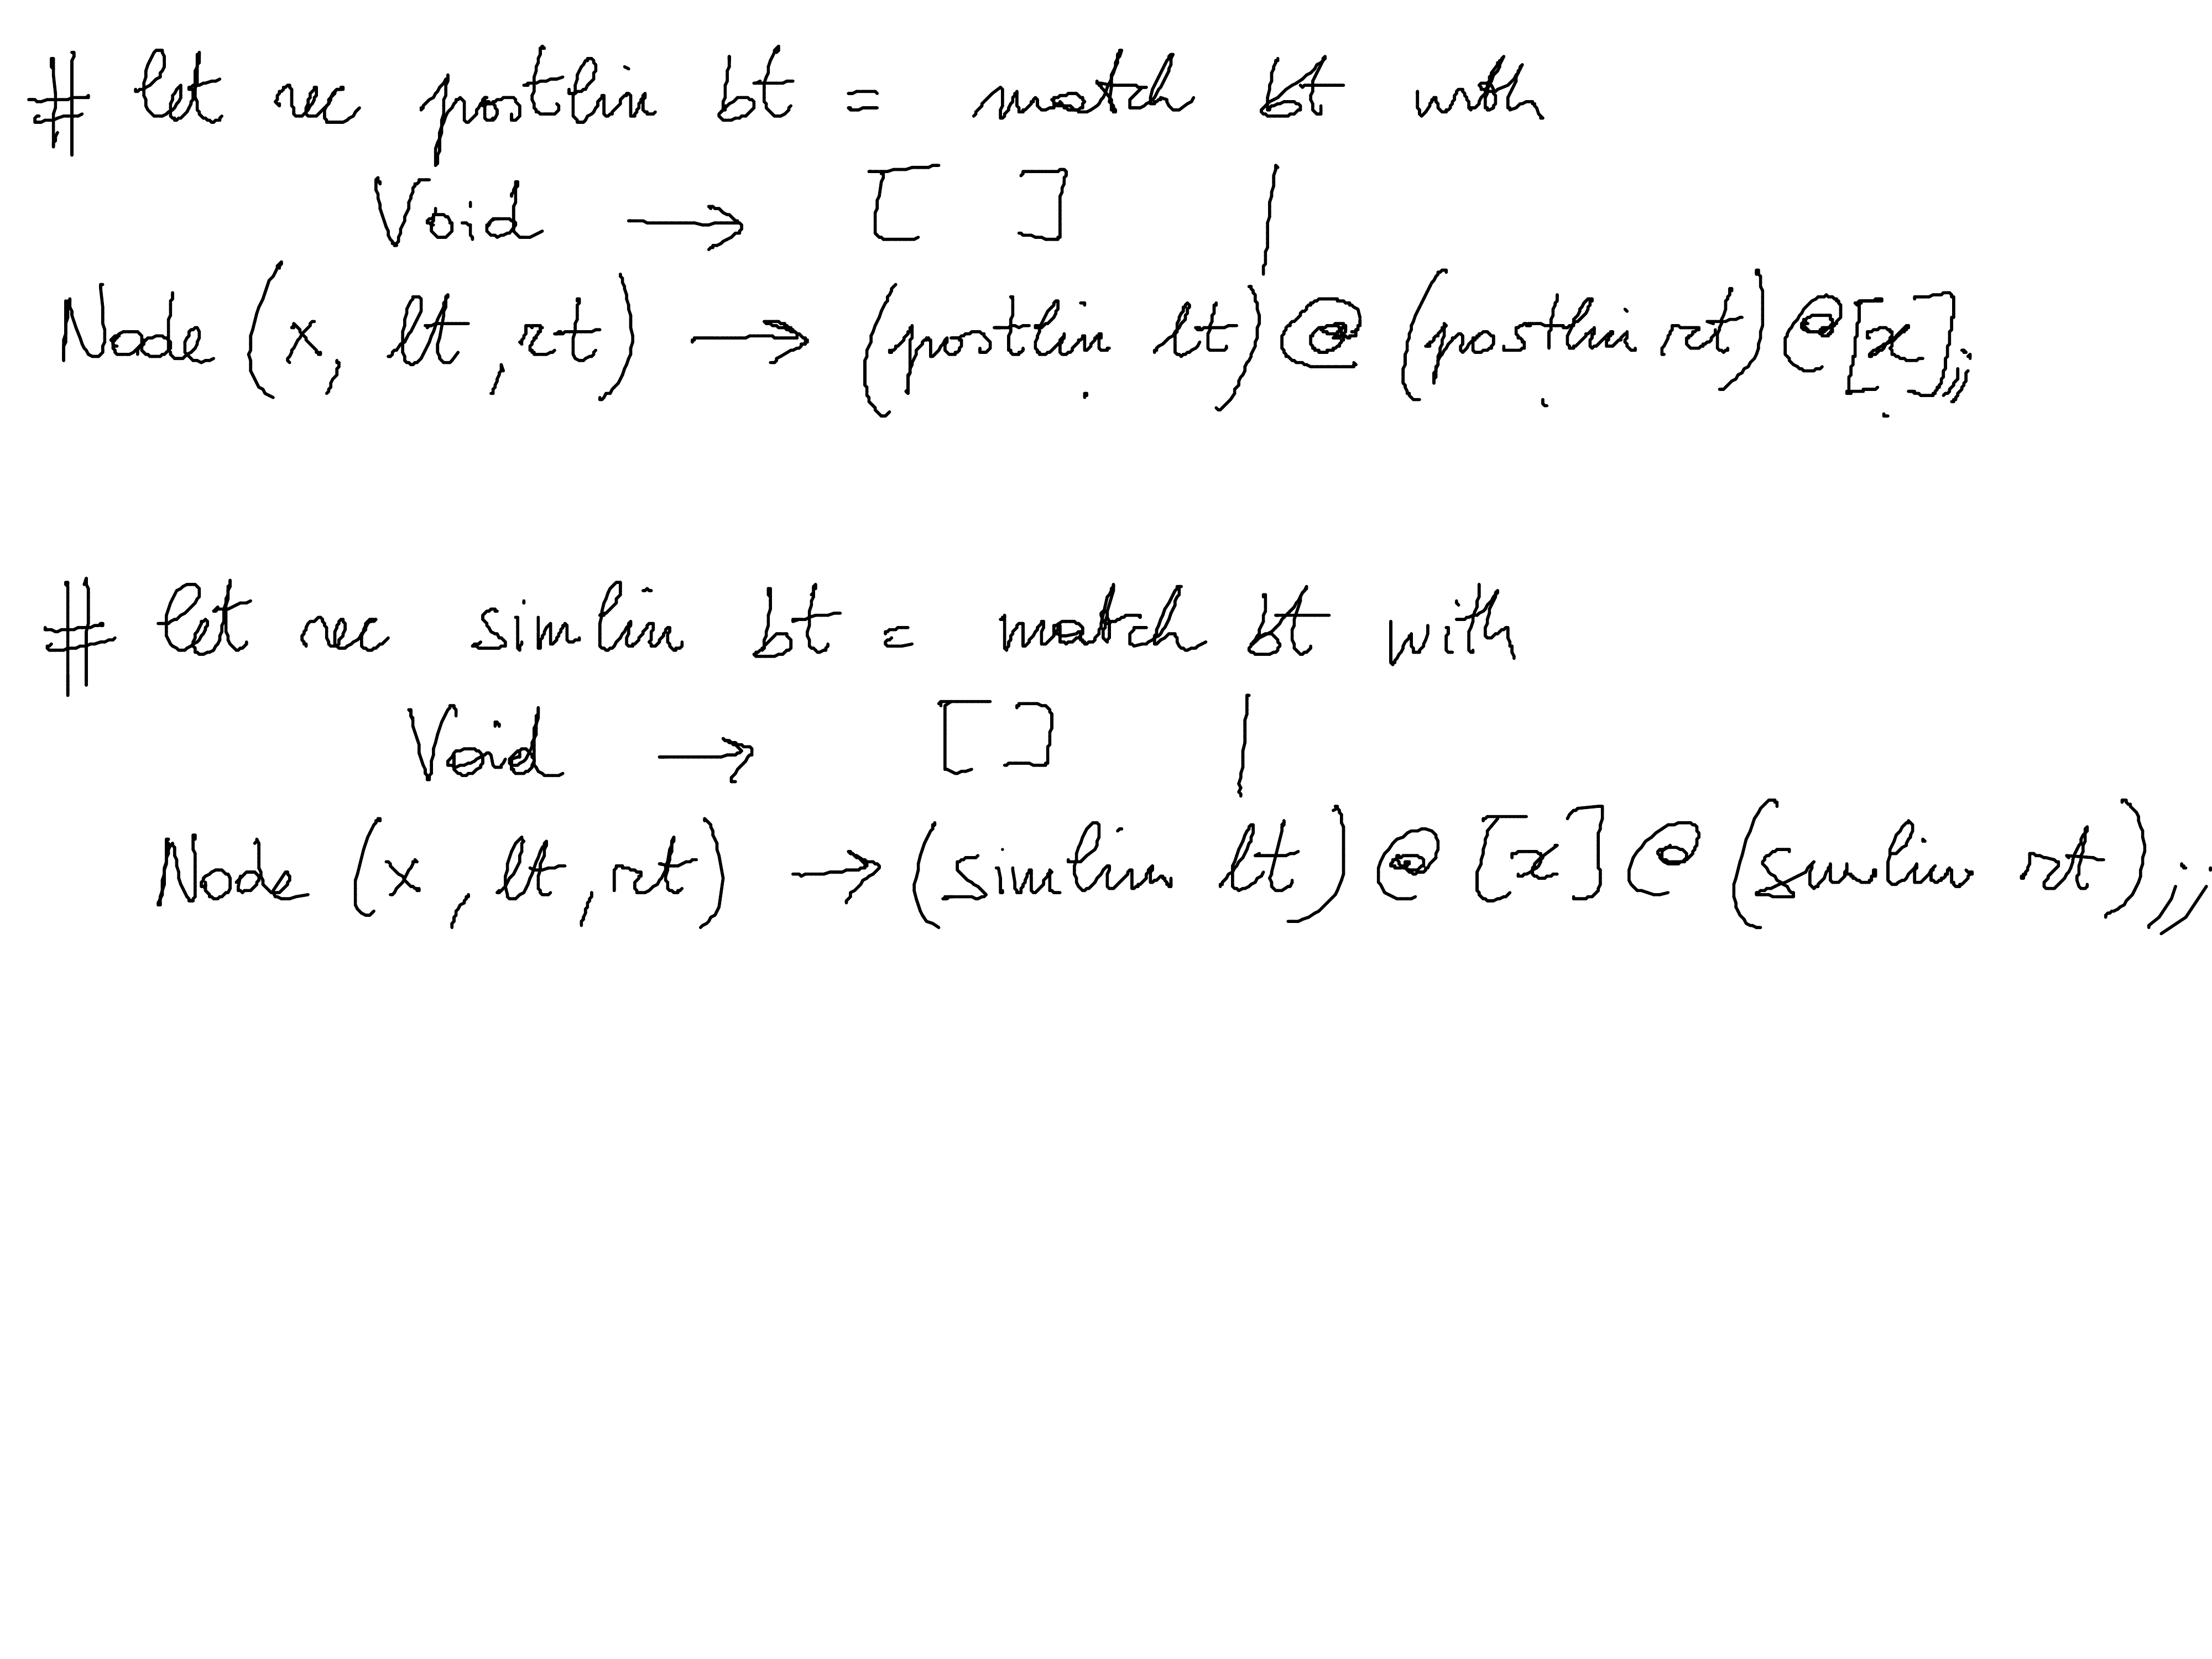 # let rec postlin bt = match bt with
Void → [ ] |
Node (x, lt, rt) → (postlin lt) @ (postlin rt) @ [x];;
# let rec simlin bt = match bt with
Void → [ ] |
Node (x, lt, rt) → (simlin lt) @ [x] @ (simlin rt);;